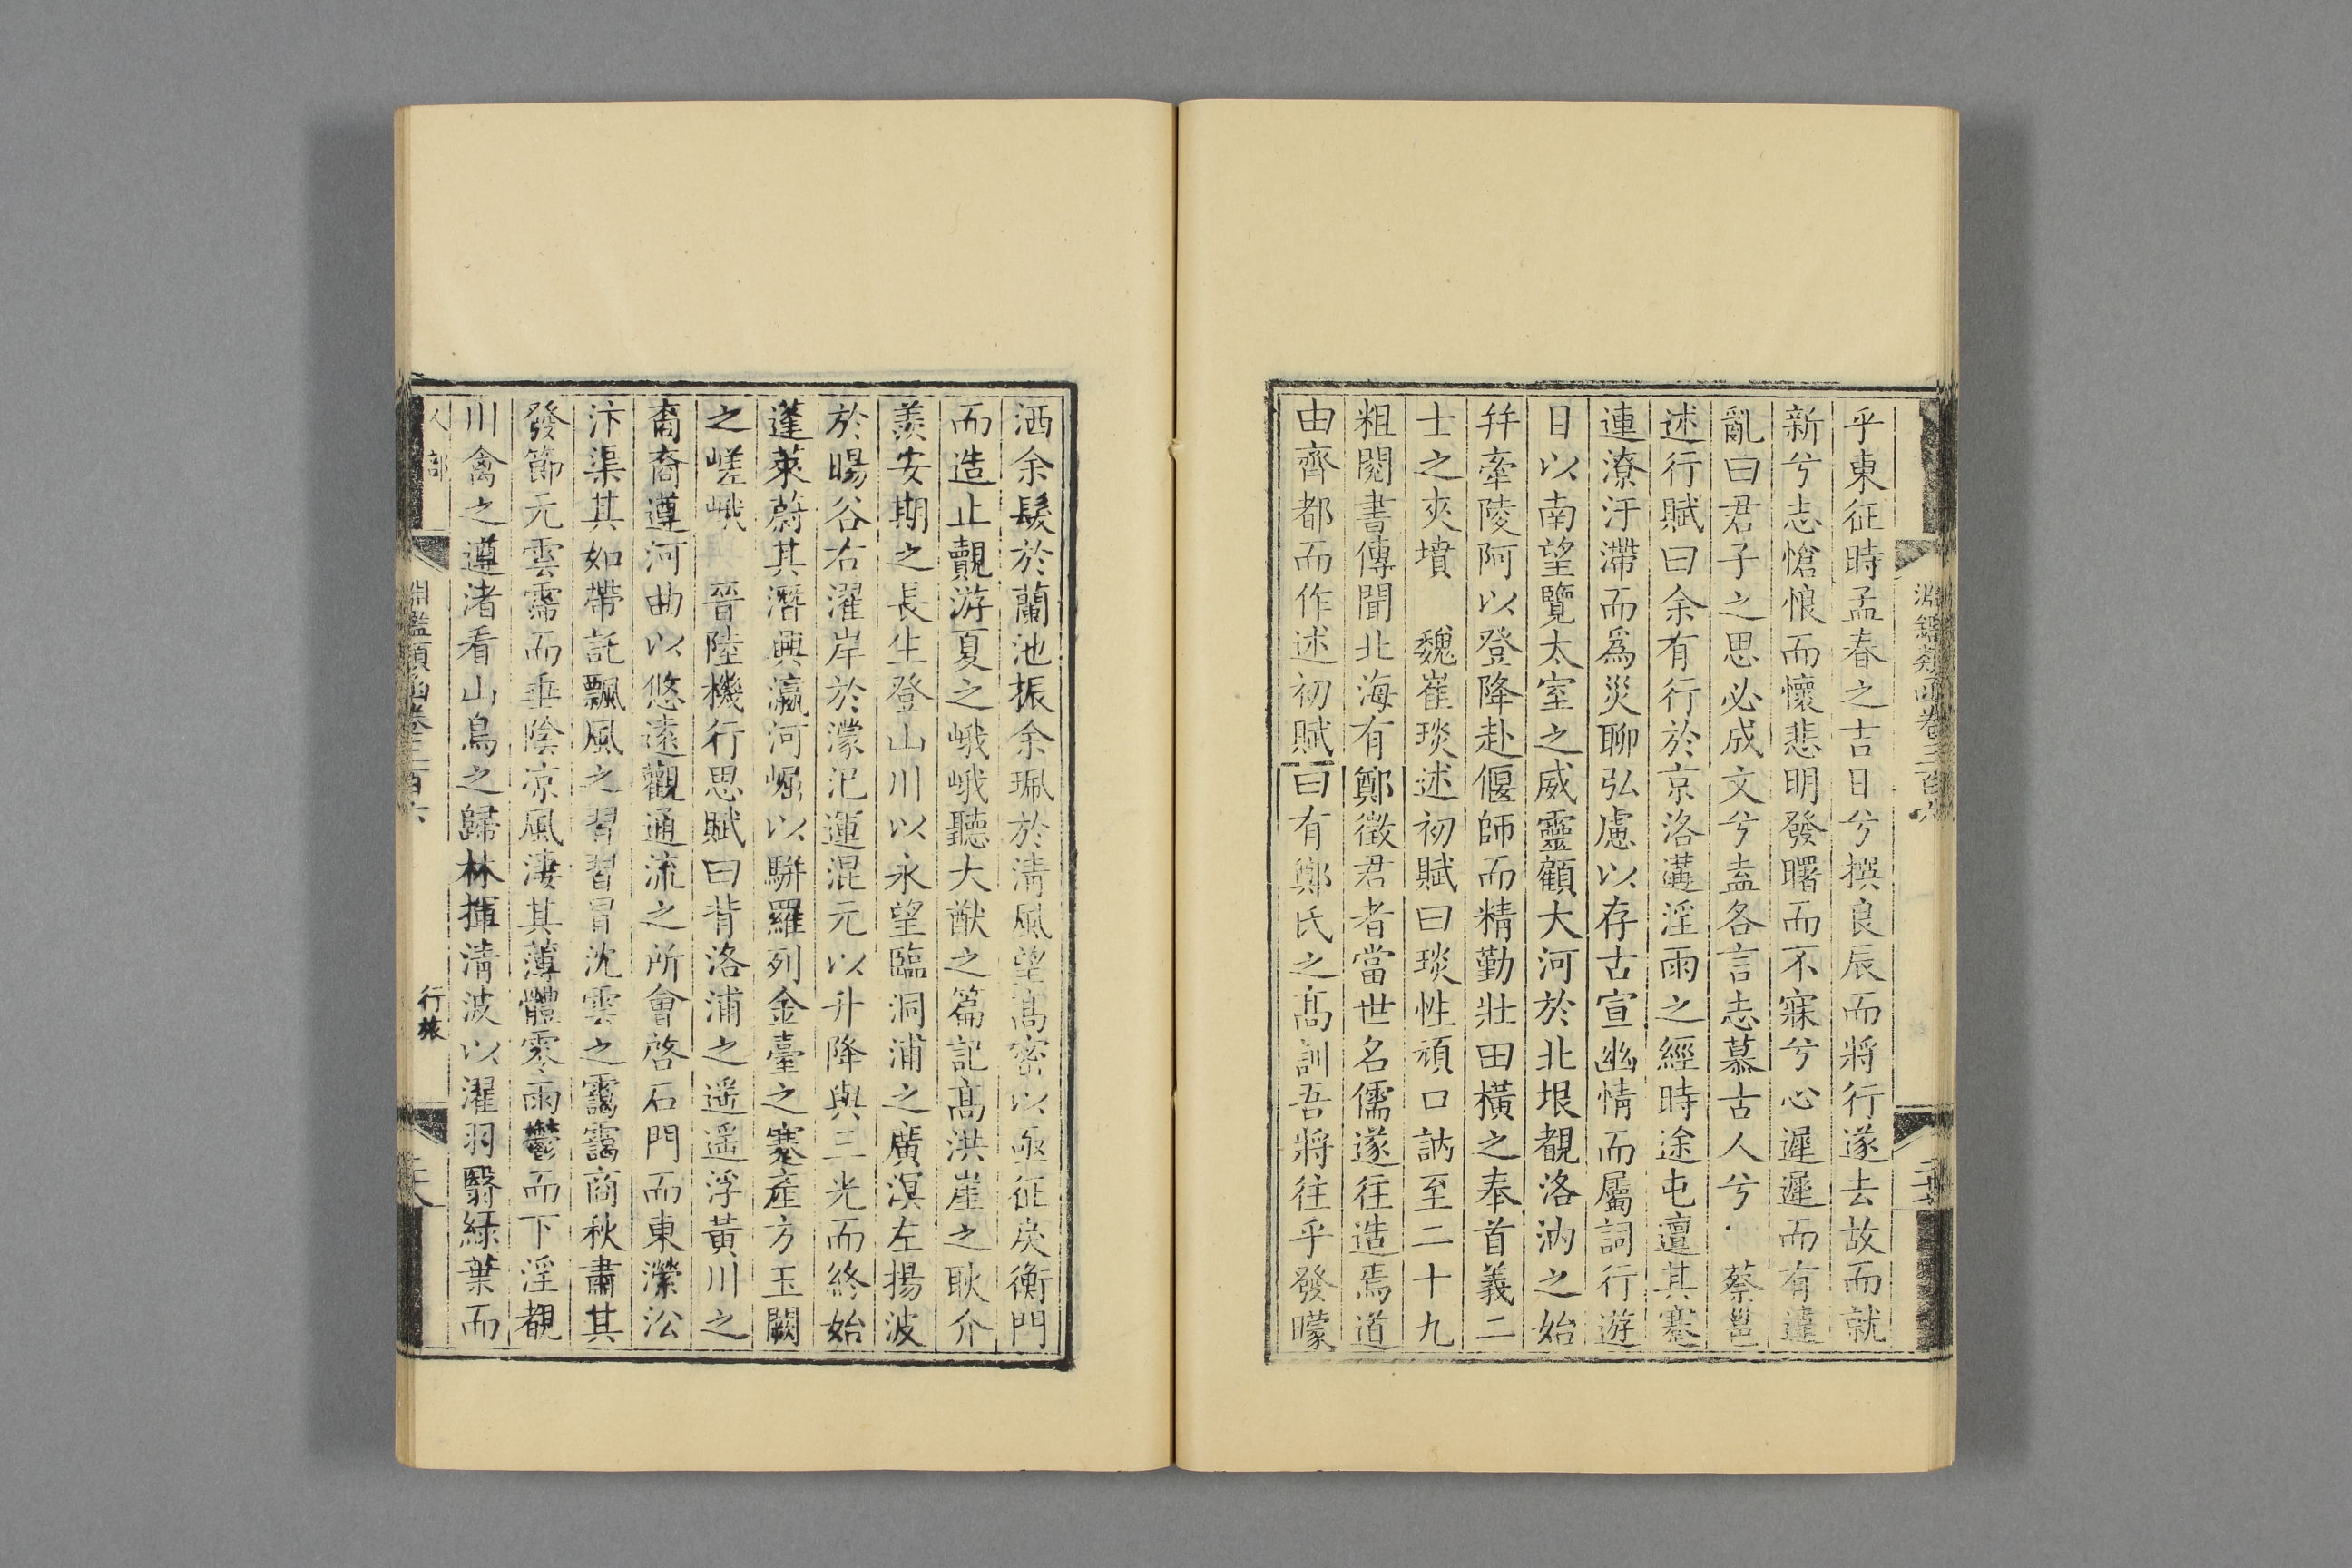 乎東征時孟春之吉日兮撰良辰而將行遂去故而就
新兮志愴悢而懷悲明發曙而不寐兮心遲遲而有違
亂曰君子之思必成文兮盍各言志慕古人兮 蔡邕
述行賦曰余有行於京洛遘淫雨之經時途屯邅其蹇
連潦汙滯而爲災聊弘慮以存古宣幽情而屬詞行遊
目以南望覽太室之威靈顧大河於北垠覩洛汭之始
幷牽陵阿以登降赴偃師而精勤壯田橫之奉首義二
士之夾墳 魏崔琰述初賦曰琰性頑口訥至二十九
粗閱書傳聞北海有鄭徵君者當世名儒遂往造焉道
由齊都而作述初賦曰有鄭氏之高訓吾將往乎發矇
洒余髮於蘭池振余珮於淸風望高密以亟征戾衡門
而造止覿游夏之峨峨聽大猷之篇記高洪崖之耿介
羨安期之長生登山川以永望臨洞浦之廣溟左揚波
於暘谷右濯岸於濛汜運混元以升降與三光而終始
蓬萊蔚其潛興瀛河崛以駢羅列金臺之蹇產方玉闕
之嵯峨 晉陸機行思賦曰背洛浦之遥遥浮黃川之
裔裔遵河曲以悠遠觀通流之所會啓石門而東縈沿
汴渠其如帶託飄風之習習冒沈雲之靄靄商秋肅其
發節元雲霈而垂陰凉風淒其薄體零雨鬱而下淫覩
川禽之遵渚看山鳥之歸林揮淸波以濯羽翳綠葉而
人部
淵鑑類函卷三百六
行旅